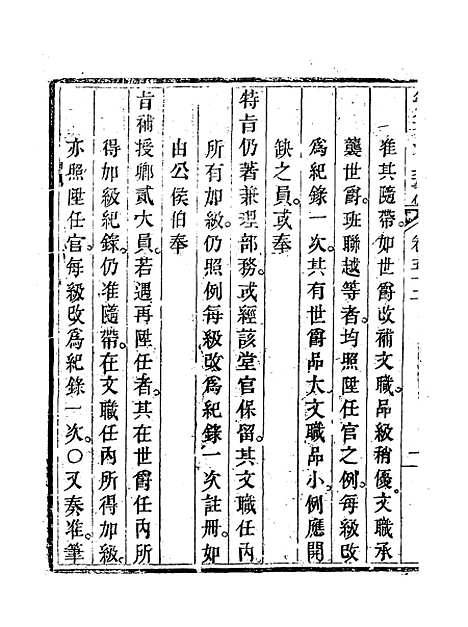 准其隨帶如世爵改補文職品級稍優文職承
襲世爵班聯越等者均照陞任官之例每級改
為紀錄一次其有世爵品大文職品小例應開
缺之員或奉
特旨仍著兼理部務或經該堂官保留其文職任內
所有加級仍照例每級改為紀錄一次註冊如
由公侯伯奉
旨補授卿貳大員若遇再陞任者其在世爵任內所
得加級紀錄仍准隨帶在文職任內所得加級
亦照陞任官每級改為紀錄一次○又奏准筆